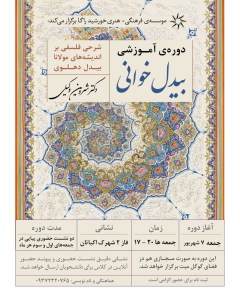 موسسه‌ی فرهنگی - هنری خورشید راگا برگزار می‌کند:
دوره‌ی آموزشی
بیدل خوانی
شرحی فلسفی بر
اندیشه‌های مولانا
بیدل دهلوی
دکتر
آغاز دوره
جمعه ۷ شهریور
زمان
جمعه ها ۲۰ - ۱۷
نشانی
فاز ۲ شهرک اکباتان
مدت دوره
دو نشست حضوری پیاپی در
جمعه‌های اول و سوم هر ماه
این دوره به صورت مجازی هم در
فضای گوگل میت برگزار خواهد شد.
نشانی دقیق نشست حضوری و پیوند حضور
آنلاین در کلاس برای دانشجویان ارسال خواهد شد.
ثبت نام برای حضور الزامی است
هماهنگی و نام نویسی: